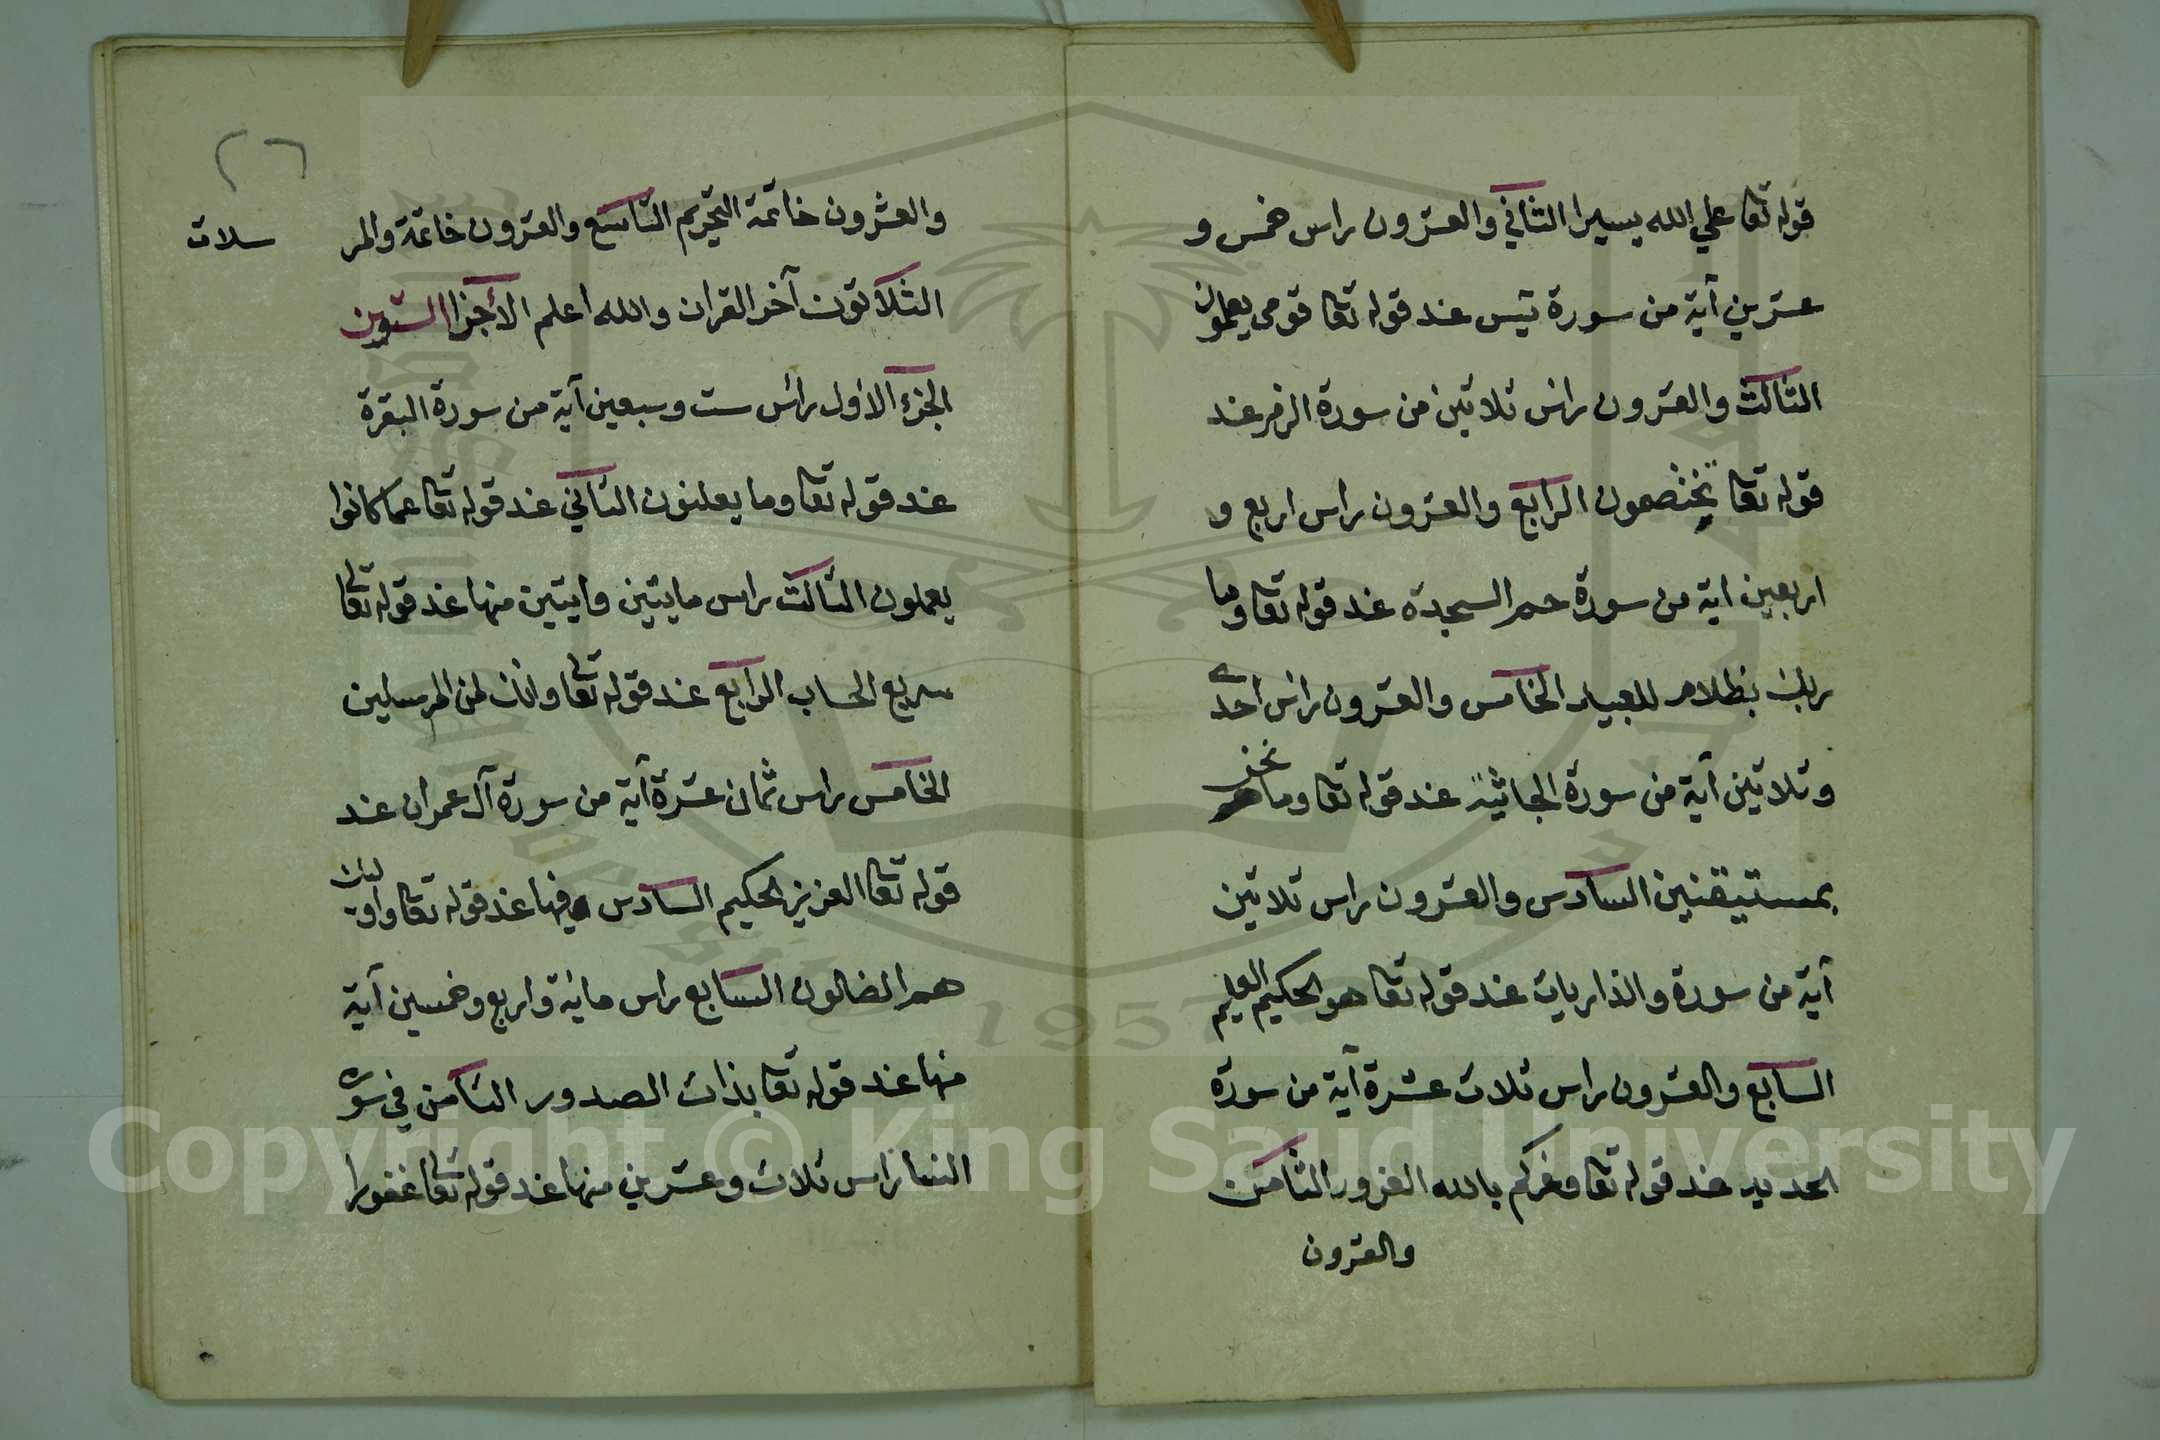 قوله تعا علي الله يسيرا الثاني والعشرون راس خمس و
عشرين آية من سورة يس عند قوله تعا قومي يعلمون
الثالث والعشرون راس ثلاثين من سورة الزمر عند
قوله تعا تختصمون الرابع والعشرون راس اربع و
اربعين اية من سورة حم السجدة عند قوله تعا وما
ربك بظلام للعبيد الخامس والعشرون راس احدى
وثلاثين آية من سورة الجاثية عند قوله تعا وما نحن
بمستيقنين السادس والعشرون راس ثلاثين
آية من سورة والذاريات عند قوله تعا هو الحكيم العليم
السابع والعشرون راس ثلاث عشرة آية من سورة
الحديد عند قوله تعا وغركم بالله الغرور الثامن
والعشرون
٢٦
والعشرون خاتمة التحريم التاسع والعشرون خاتمة والمر
سلات
الثلاثون آخر القران والله اعلم الأجزا الستون
الجزء الاول راس ست وسبعين آية من سورة البقرة
عند قوله تعا وما يعلنون الثاني عند قوله تعا عما كانوا
يعملون الثالث راس مايتين وايتين منها عند قوله تعا
سريع الحساب الرابع عند قوله تعا وانك لمن المرسلين
الخامس راس ثمان عشرة آية من سورة آل عمران عند
قوله تعا العزيز الحكيم السادس فيها عند قوله تعا واوليك
هم الضالون السابع راس ماية واربع وخمسين آية
منها عند قوله تعا بذات الصدور الثامن في سورة
النسا راس ثلاث وعشرين منها عند قوله تعا غفورا
King Saud University
1957
Copyright © King Saud University